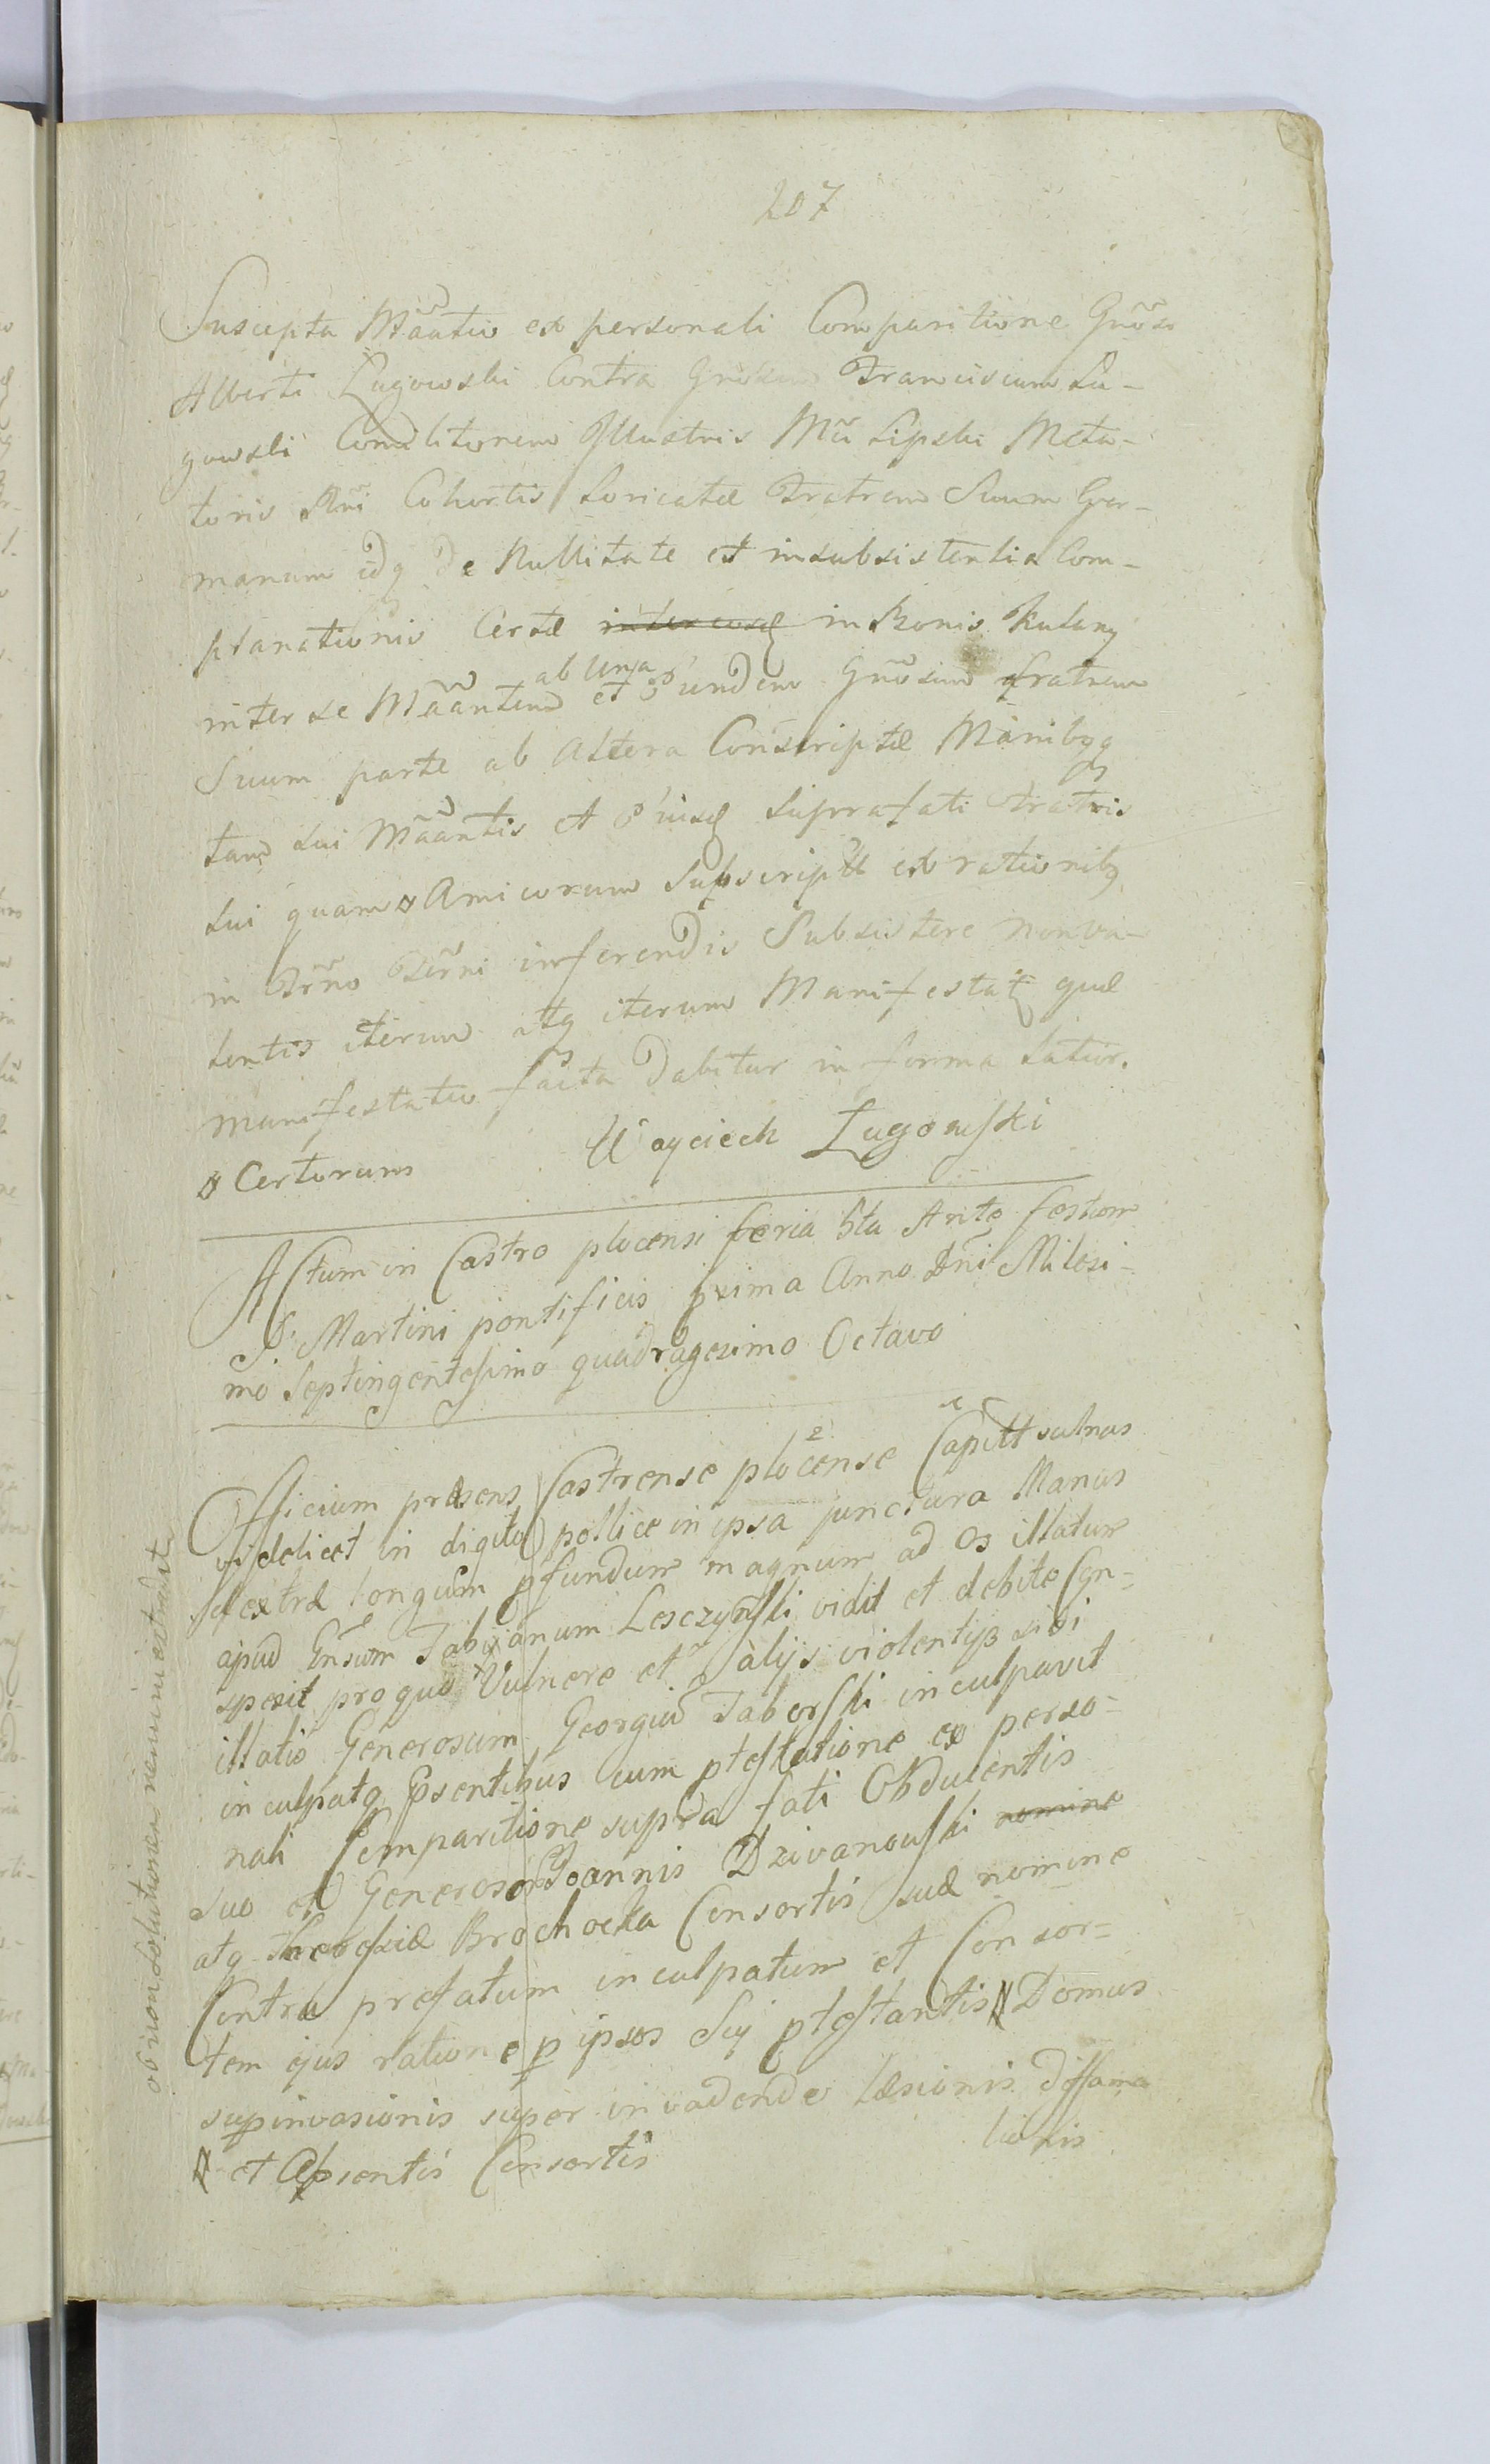 207
Suscepta Mããtio ex personali Comparitione Gnõsi
Alberti Ługowski Contra Gnõsum Franciscum Łu-
gowski Comilitonem Illustris Mci Lipski Meta-
toris Rni Cohortis Loricatæ Fratrem Suum Ger-
manum idq de Nullitate et insubsistentia Com-
planationis Certæ inter eosd in Bonis
inter se Mããntem ab una et eundem Gnõsum fratrem
Suum parte ab altera Conscriptæ Manibqq
tam sui Mããntis et eiusd suprafati Fratris
sui quam Amicorum Subscriptæ ex rationibq
in Trno Terni inferendis Subsistere non va-
lentis iterum atq iterum Manifestat quæ
manifestatio facta dabitur in forma latior.
Woyciech Ługowski
Certorum
Actum in Castro plocensi feria 5ta Ante festum
S. Martini pontificis prima Anno Dni Milesi-
mo Septingentesimo quadragesimo Octavo
Officium præsens Castrense plocense Capitt vulnus
videlicet in digito pollice in ipsa junctura Manus
dextræ longum pfundum magnum ad os illatum
apud Gnsum Fabianum Lesczynski vidit et debite Con-
spexit pro quo Vulnere et alijs violentijs sibi
illatis Generosum Georgiũ Taborski inculpavit
inculpatq psentibus cum ptestatione ex perso-
nali Comparitione supra fati Obducentis
suo et Generosor Joannis Dzivanouski nomine
atq Theodsiæ Brochocka Consortis suæ nomine
Contra prefatum inculpatum et Consor-
tem ejus ratione p ipsos Sui ptestantis Domus
supinvasionis super invadendo læsionis diffama
tionis
et Absentis Consortis
ob non solutiones nemini extradit